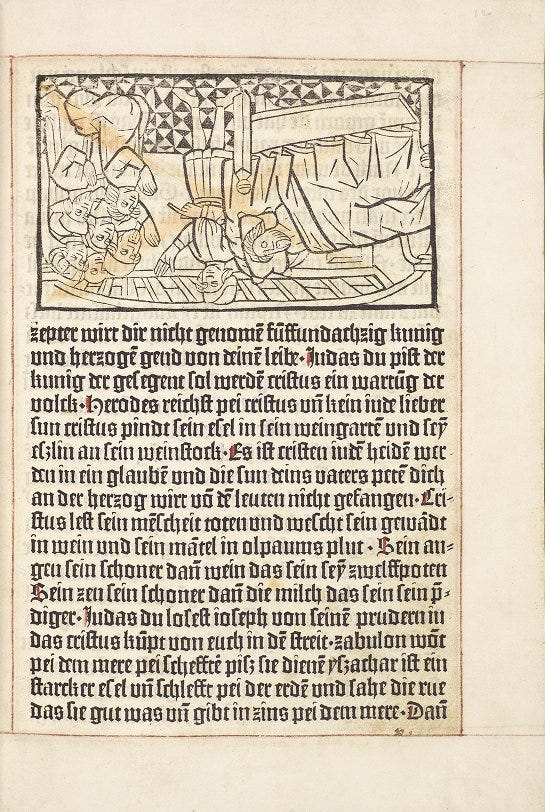 zepter wirt dir nicht genomē fūffundachzig kunig
vnd herzogē gend von deinē leibe · Judas du pist der
kunig der gesegent sol werdē cristus ein wartūg der
volck · Herodes reichst pei cristus vn̄ kein iude lieber
sun cristus pindt sein esel in sein weingartē vnd sey
eszlin an sein weinstock · Es ist cristen iudē heidē wer
den in ein glaubē vnd die sun deins vaters petē dich
an der herzog wirt vō dē leuten nicht gefangen · Cri⸗
stus lest sein mēscheit toten vnd wescht sein gewādt
in wein vnd sein mātel in olpaums plut · Sein au⸗
gen sein schoner dan̄ wein das sein sey̆ zwelffpoten
Sein zen sein schoner dan̄ die milch das sein sein p̄⸗
diger · Judas du losest ioseph von seinē prudern in
das cristus kūpt von euch in dē streit · zabulon wōt
pei dem mere pei scheffrē pisz sie dienē yszachar ist ein
starcker esel vn̄ schlefft pei der erdē vnd sahe die rue
das sie gut was vn̄ gibt in zins pei dem mere · Dan̄